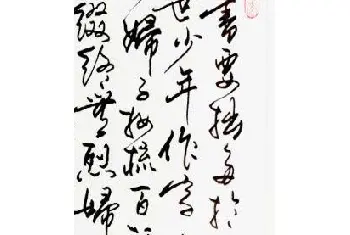 書要拙多於
世少年作字
婦子妝梳百
綴終無烈婦